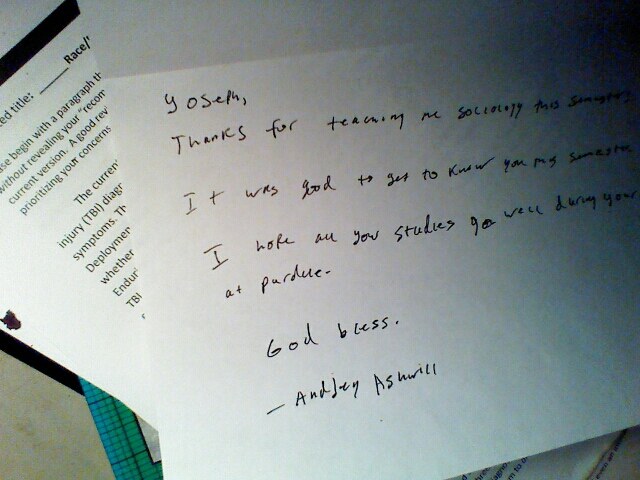 Yoseph,
Thanks for teaching me sociology this semester,
It was good to get to know you this semester
I hope all your studies go well during your
at purdue.
God bless.
- Andrey Ashwill
ed title: _____ Race/
se begin with a paragraph th
without revealing your "recom
current version. A good rev
prioritizing your concerns
The current
injury (TBI) diagn
symptoms. Th
Deploymen
whether
Endur
TBI